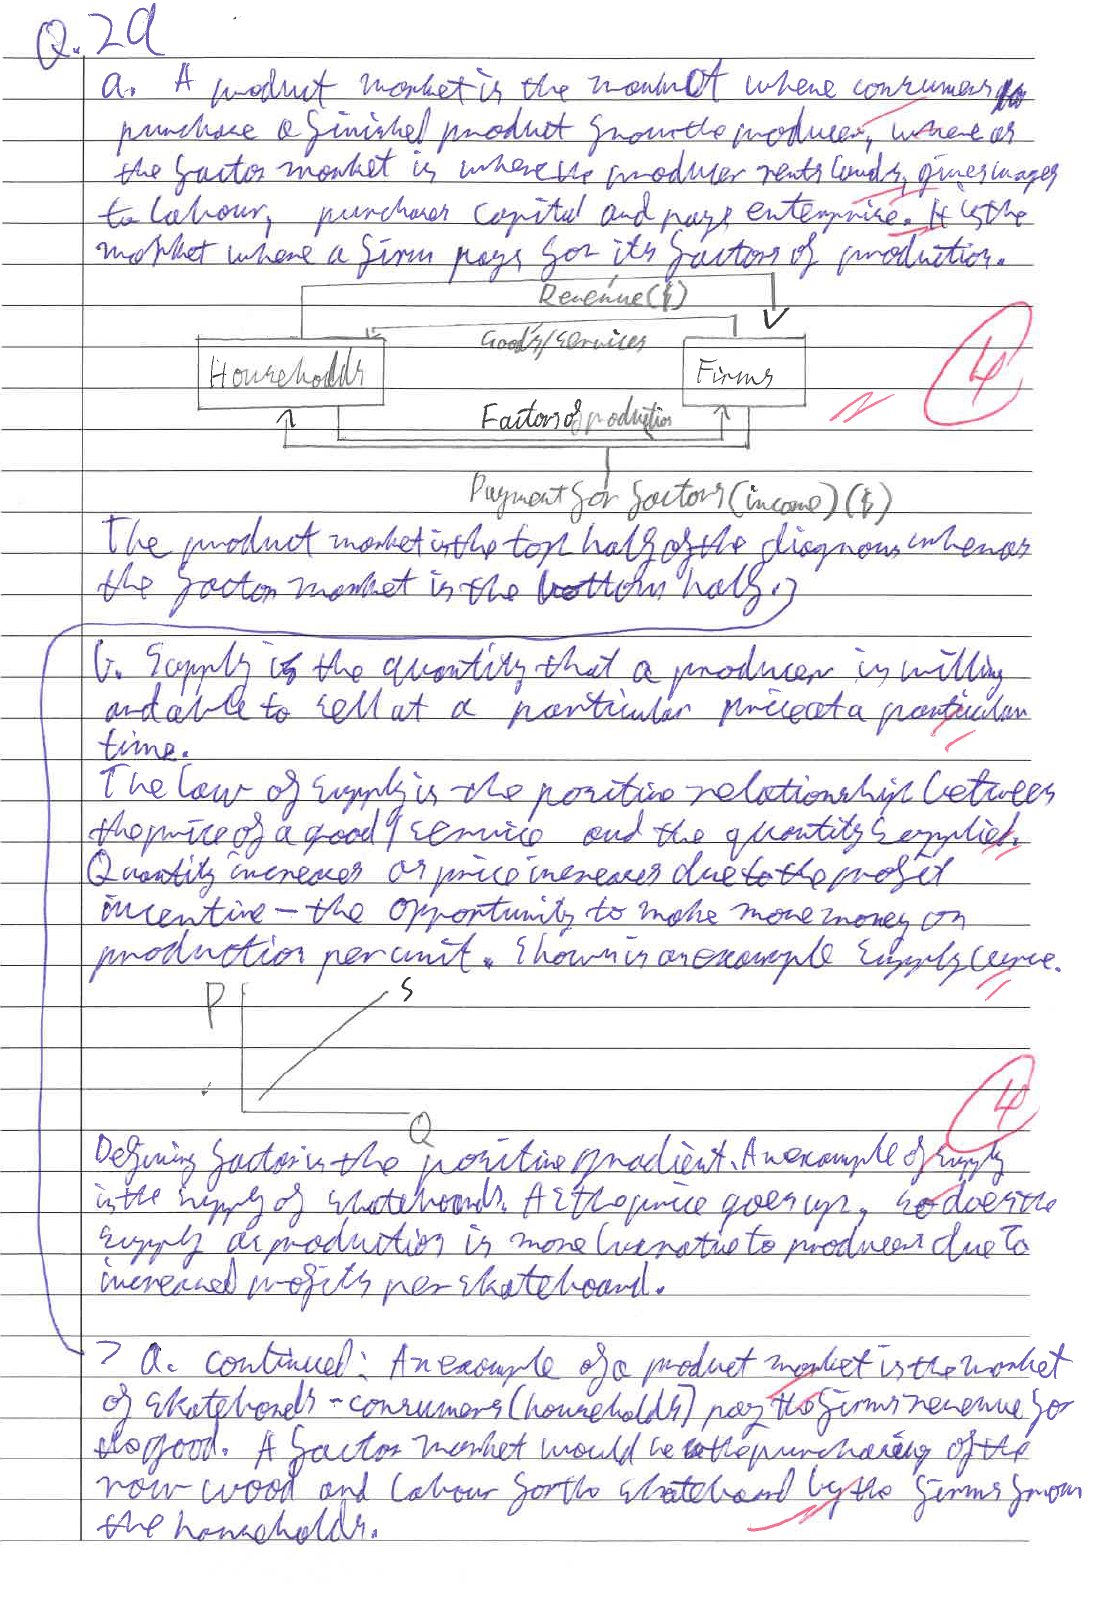 Q.2a
a. A product market is the market where consumers
purchase a finished product from the producer, where as
the factor market is where the producer rents lands, gives wages
to labour, purchases capital and pays enterprise. It is the
market where a firm pays for its factors of production.
Revenue($)
Goods/services
Households
Firms
4
Factors of production
Payment for factors (income) ($)
The product market is the top half of the diagram whereas
the factor market is the bottom half.
b. Supply is the quantity that a producer is willing
and able to sell at a particular price at a particular
time.
The law of supply is the positive relationship between
the price of a good/service and the quantity supplied.
Quantity increases as price increases due to the profit
incentive - the opportunity to make more money on
production per unit. Shown is an example supply curve.
P
S
4
Q
Defining factor is the positive gradient. An example of supply
is the supply of skateboards. As the price goes up, so does the
supply as production is more lucrative to producers due to
increased profits per skateboard.
> a. continued: An example of a product market is the market
of skateboards - consumers (households) pay the firms revenue for
the good. A factor market would be the purchasing of the
raw wood and labour for the skateboard by the firms from
the households.